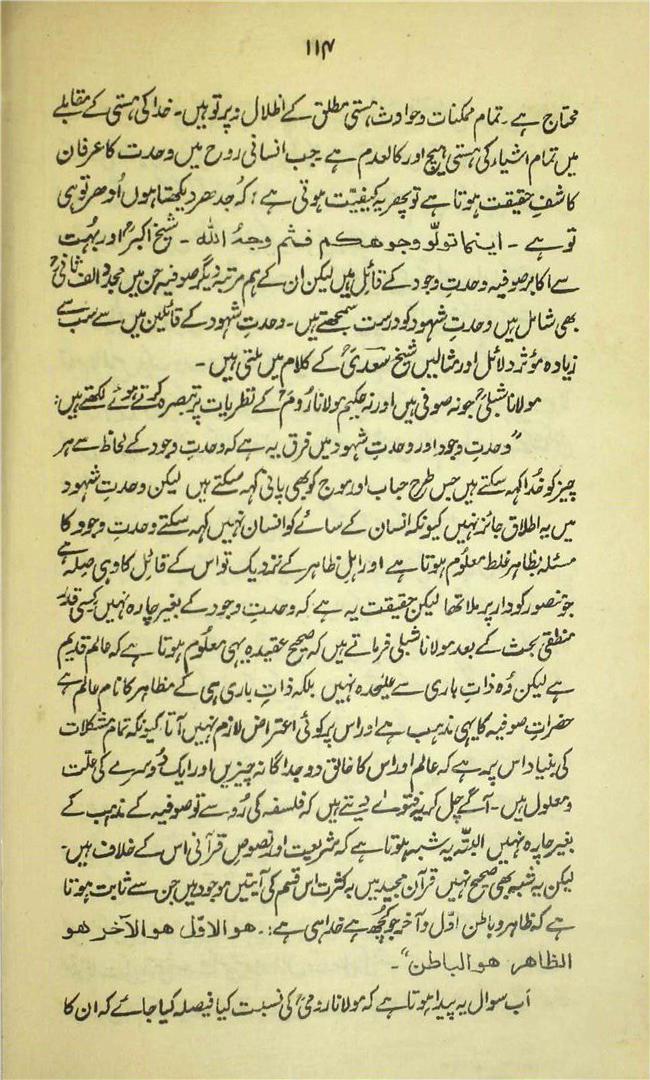 ۱۱۴
محتاج ہے۔ تمام ممکنات وحوادث ہستی مطلق کے اظلال نہ پر تو ہیں۔ خدا کی ہستی کے مقابلے
میں تمام اشیاء کی ہستی ہیچ اور کالعدم ہے۔ جب انسانی روح میں وحدت کا عرفان
کاشفِ حقیقت ہوتا ہے تو پھر یہ کیفیّت ہوتی ہے؛ کہ جدھر دیکھتا ہوں اُودھر تو ہی
تو ہے۔ اینما تولّو وجوھکم فثم وجہُ اللہ۔ شیخ اکبرؒ اور بہُت
سے اکابر صوفیہ وحدتِ وجود کے قائل ہیں لیکن ان کے ہم مرتبہ دیگر صوفیہ جن میں مجدد الف ثانیؒ
بھی شامل ہیں وحدتِ شہود کو درست سمجھتے ہیں۔ وحدتِ شہود کے قائلین میں سے سب سے
زیادہ مؤثر دلائل اور مثالیں شیخ سعدیؒ کے کلام میں ملتی ہیں۔
مولانا شبلیؒ جو نہ صوفی ہیں اور نہ حکیم مولانا رُومؒ کے نظریات پر تبصرہ کرتے ہوئے لکھتے ہیں:
”وحدتِ وجود اور وحدتِ شہود میں فرق یہ ہے کہ وحدتِ وجود کے لحاظ سے ہر
چیز کو خُدا کہہ سکتے ہیں جس طرح حباب اور موج کو بھی پانی کہہ سکتے ہیں لیکن وحدتِ شہود
میں یہ اطلاق جائز نہیں کیونکہ انسان کے سائے کو انسان نہیں کہہ سکتے وحدتِ وجود کا
مسئلہ بظاہر غلط معلُوم ہوتا ہے اور اہلِ ظاہر کے نزدیک تو اس کے قائل کا وہی صِلہ ہے
جو منصور کو دار پر ملا تھا لیکن حقیقت یہ ہے کہ وحدتِ وجود کے بغیر چارہ نہیں کِسی قدر
منطقی بحث کے بعد مولانا شبلی فرماتے ہیں کہ صحیح عقیدہ یہی معلُوم ہوتا ہے کہ عالم قدیم
ہے لیکن وُہ ذاتِ باری سے علیٰحدہ نہیں بلکہ ذاتِ باری ہی کے مظاہر کا نام عالم ہے
حضراتِ صوفیہ کا یہی مذہب ہے اور اس پر کوئی اعتراض لازم نہیں آتا۔ کیونکہ تمام مشکلات
کی بنیاد اس پر ہے کہ عالم اور اس کا خالق دو جداگانہ چیزیں اور ایک دُوسرے کی علّت
و معلول ہیں۔ آگے چل کر یہ فتوےٰ دیتے ہیں کہ فلسفہ کی رُو سے تو صوفیہ کے مذہب کے
بغیر چارہ نہیں البتّہ یہ شبہہ ہوتا ہے کہ شریعت اور نصوصِ قرآنی اس کے خلاف ہیں۔
لیکن یہ شبہ بھی صحیح نہیں قرآن مجید میں بہ کثرت اس قسم کی آیتیں موجود ہیں جن سے ثابت ہوتا
ہے کہ ظاہر و باطن اوّل و آخر جو کچھ ہے خدا ہی ہے:۔ ھو الاوّل ھو الآخر ھو
الظاھر ھو الباطن“۔
اَب سوال یہ پیدا ہوتا ہے کہ مولانا رومیؒ کی نسبت کیا فیصلہ کیا جائے کہ ان کا